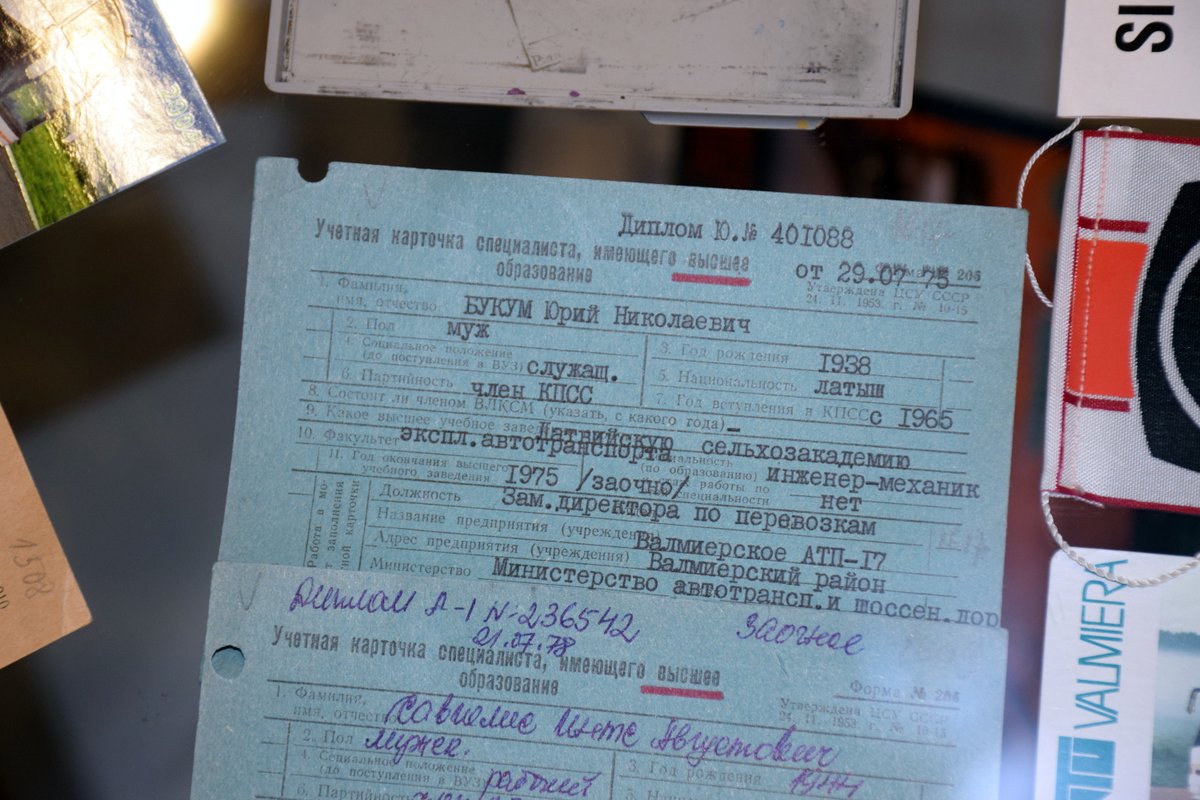 SI
Диплом Ю.№ 401088
Учетная карточка специалиста, имеющего высшее
образование
от 29.07 75
Форма № 206
Утверждена ЦСУ СССР
24. 11. 1953. г. № 10-15
1. Фамилия,
имя, отчество БУКУМ Юрий Николаевич
2. Пол муж
3. Год рождения 1938
4. Социальное положение
(до поступления в ВУЗ) служащ.
5. Национальность латыш
6. Партийность член КПСС
7. Год вступления в КПСС с 1965
8. Состоит ли членом ВЛКСМ (указать, с какого года) –
9. Какое высшее учебное заве Латвийскую сельхозакадемию
10. Факультет экспл.автотранспорта
(по образованию) инженер-механик
11. Год окончания высшего
учебного заведения 1975 /заочно/
работы по
специальности нет
Работа в мо
заполнения
ной карточки
Должность Зам.директора по перевозкам
Название предприятия (учрежден Валмиерское АТП-17
Адрес предприятия (учреждения) Валмиерский район
Министерство Министерство автотрансп.и шоссен.дор
Диплом А-I N-236542 Заочное
21.07.78
Учетная карточка специалиста, имеющего высшее
образование
Форма № 206
Утверждена ЦСУ СС
24. 11. 1953 г. № 10-15
1. Фамилия,
имя, отчест Августович
2. Пол мужс.
3. Год рождения 1944
4. Социальное положение
(до поступления в ВУЗ) рабочий
6. Партийность
1508
VALMIERA